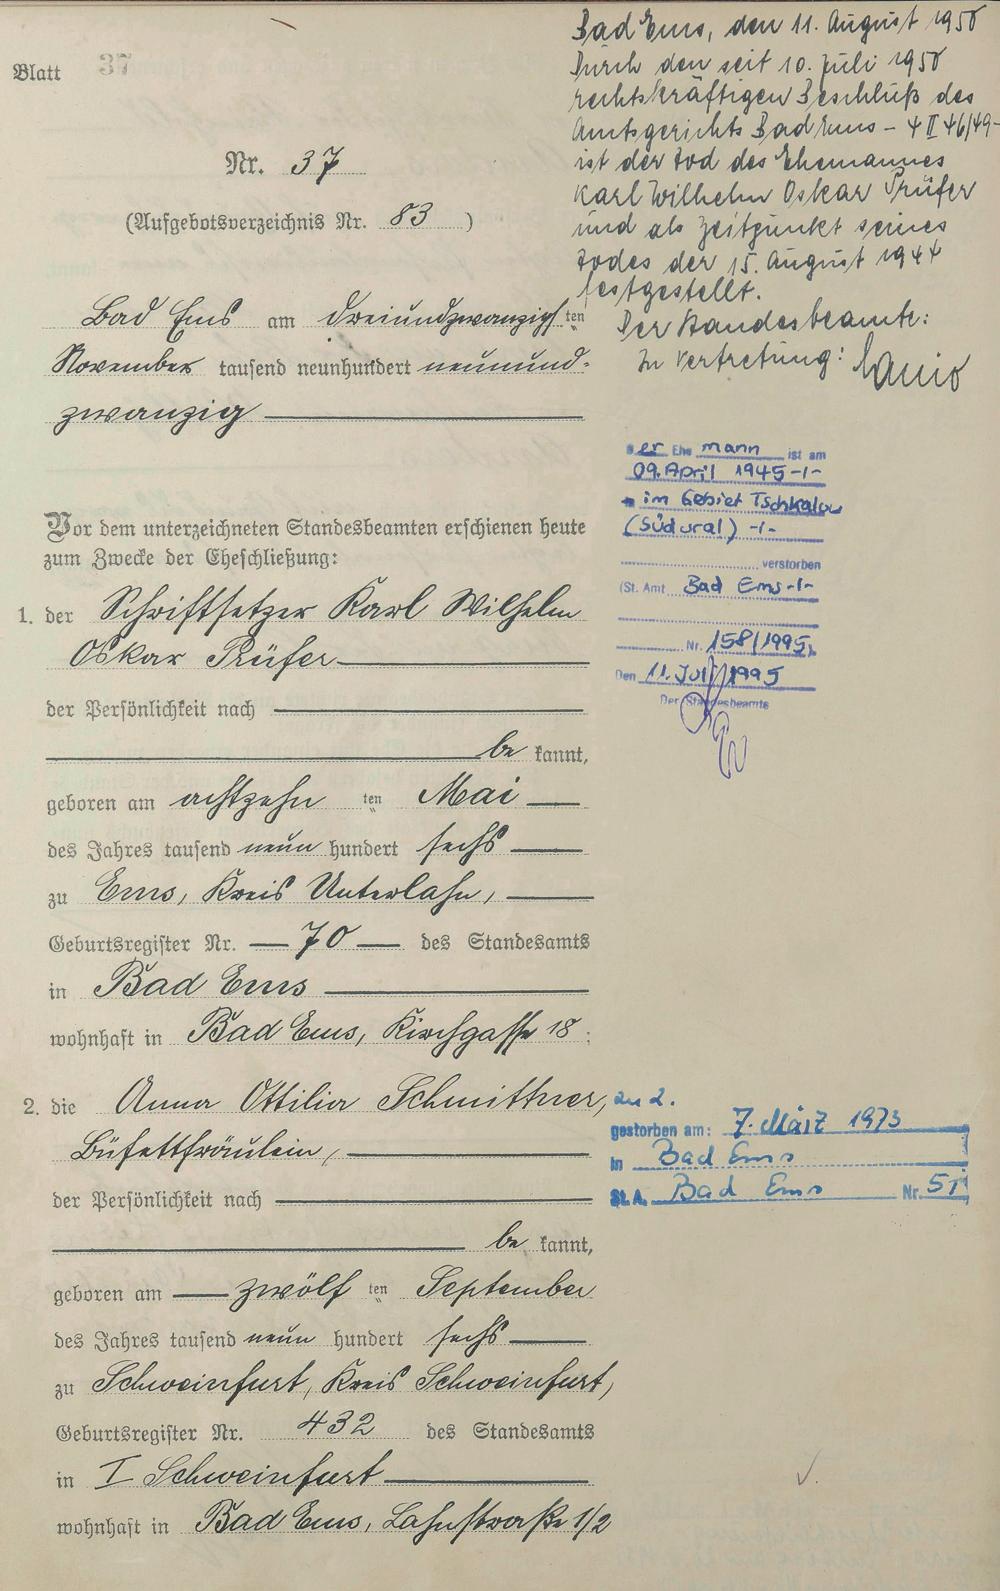 Blatt 37
Nr. 37
(Aufgebotsverzeichnis Nr. 83 )
Bad Ems am dreiundzwanzigsten
November tausend neunhundert neunund-
zwanzig
Vor dem unterzeichneten Standesbeamten erschienen heute
zum Zwecke der Eheschließung:
1. der Schriftsetzer Karl Wilhelm
Oskar Prüfer
der Persönlichkeit nach
be kannt,
geboren am achtzehn ten Mai
des Jahres tausend neun hundert sechs
zu Ems, Kreis Unterlahn,
Geburtsregister Nr. 70 des Standesamts
in Bad Ems
wohnhaft in Bad Ems, Kirchgasse 18.
2. die Anna Ottilia Schmittner,
Büfettfräulein,
der Persönlichkeit nach
be kannt,
geboren am zwölf ten September
des Jahres tausend neun hundert sechs
zu Schweinfurt, Kreis Schweinfurt,
Geburtsregister Nr. 432 des Standesamts
in I Schweinfurt
wohnhaft in Bad Ems, Lahnstraße 1/2
Bad Ems, den 11. August 1950
Durch den seit 10. Juli 1950
rechtskräftigen Beschluß des
Amtsgerichts Bad Ems - 4 II 46/49-
ist der Tod des Ehemannes
Karl Wilhelm Oskar Prüfer
und als Zeitpunkt seines
Todes der 15. August 1944
festgestellt.
Der Standesbeamte:
In Vertretung:
er Ehe mann ist am
09. April 1945 -/-
im Gebiet Tschkalow
(Südural) -/-
verstorben
(St. Amt Bad Ems -/-
Nr. 158/1995)
Den 11. Juli 1995
Der Standesbeamte
zu 2.
gestorben am: 7. März 1973
in Bad Ems
St. A. Bad Ems Nr. 51